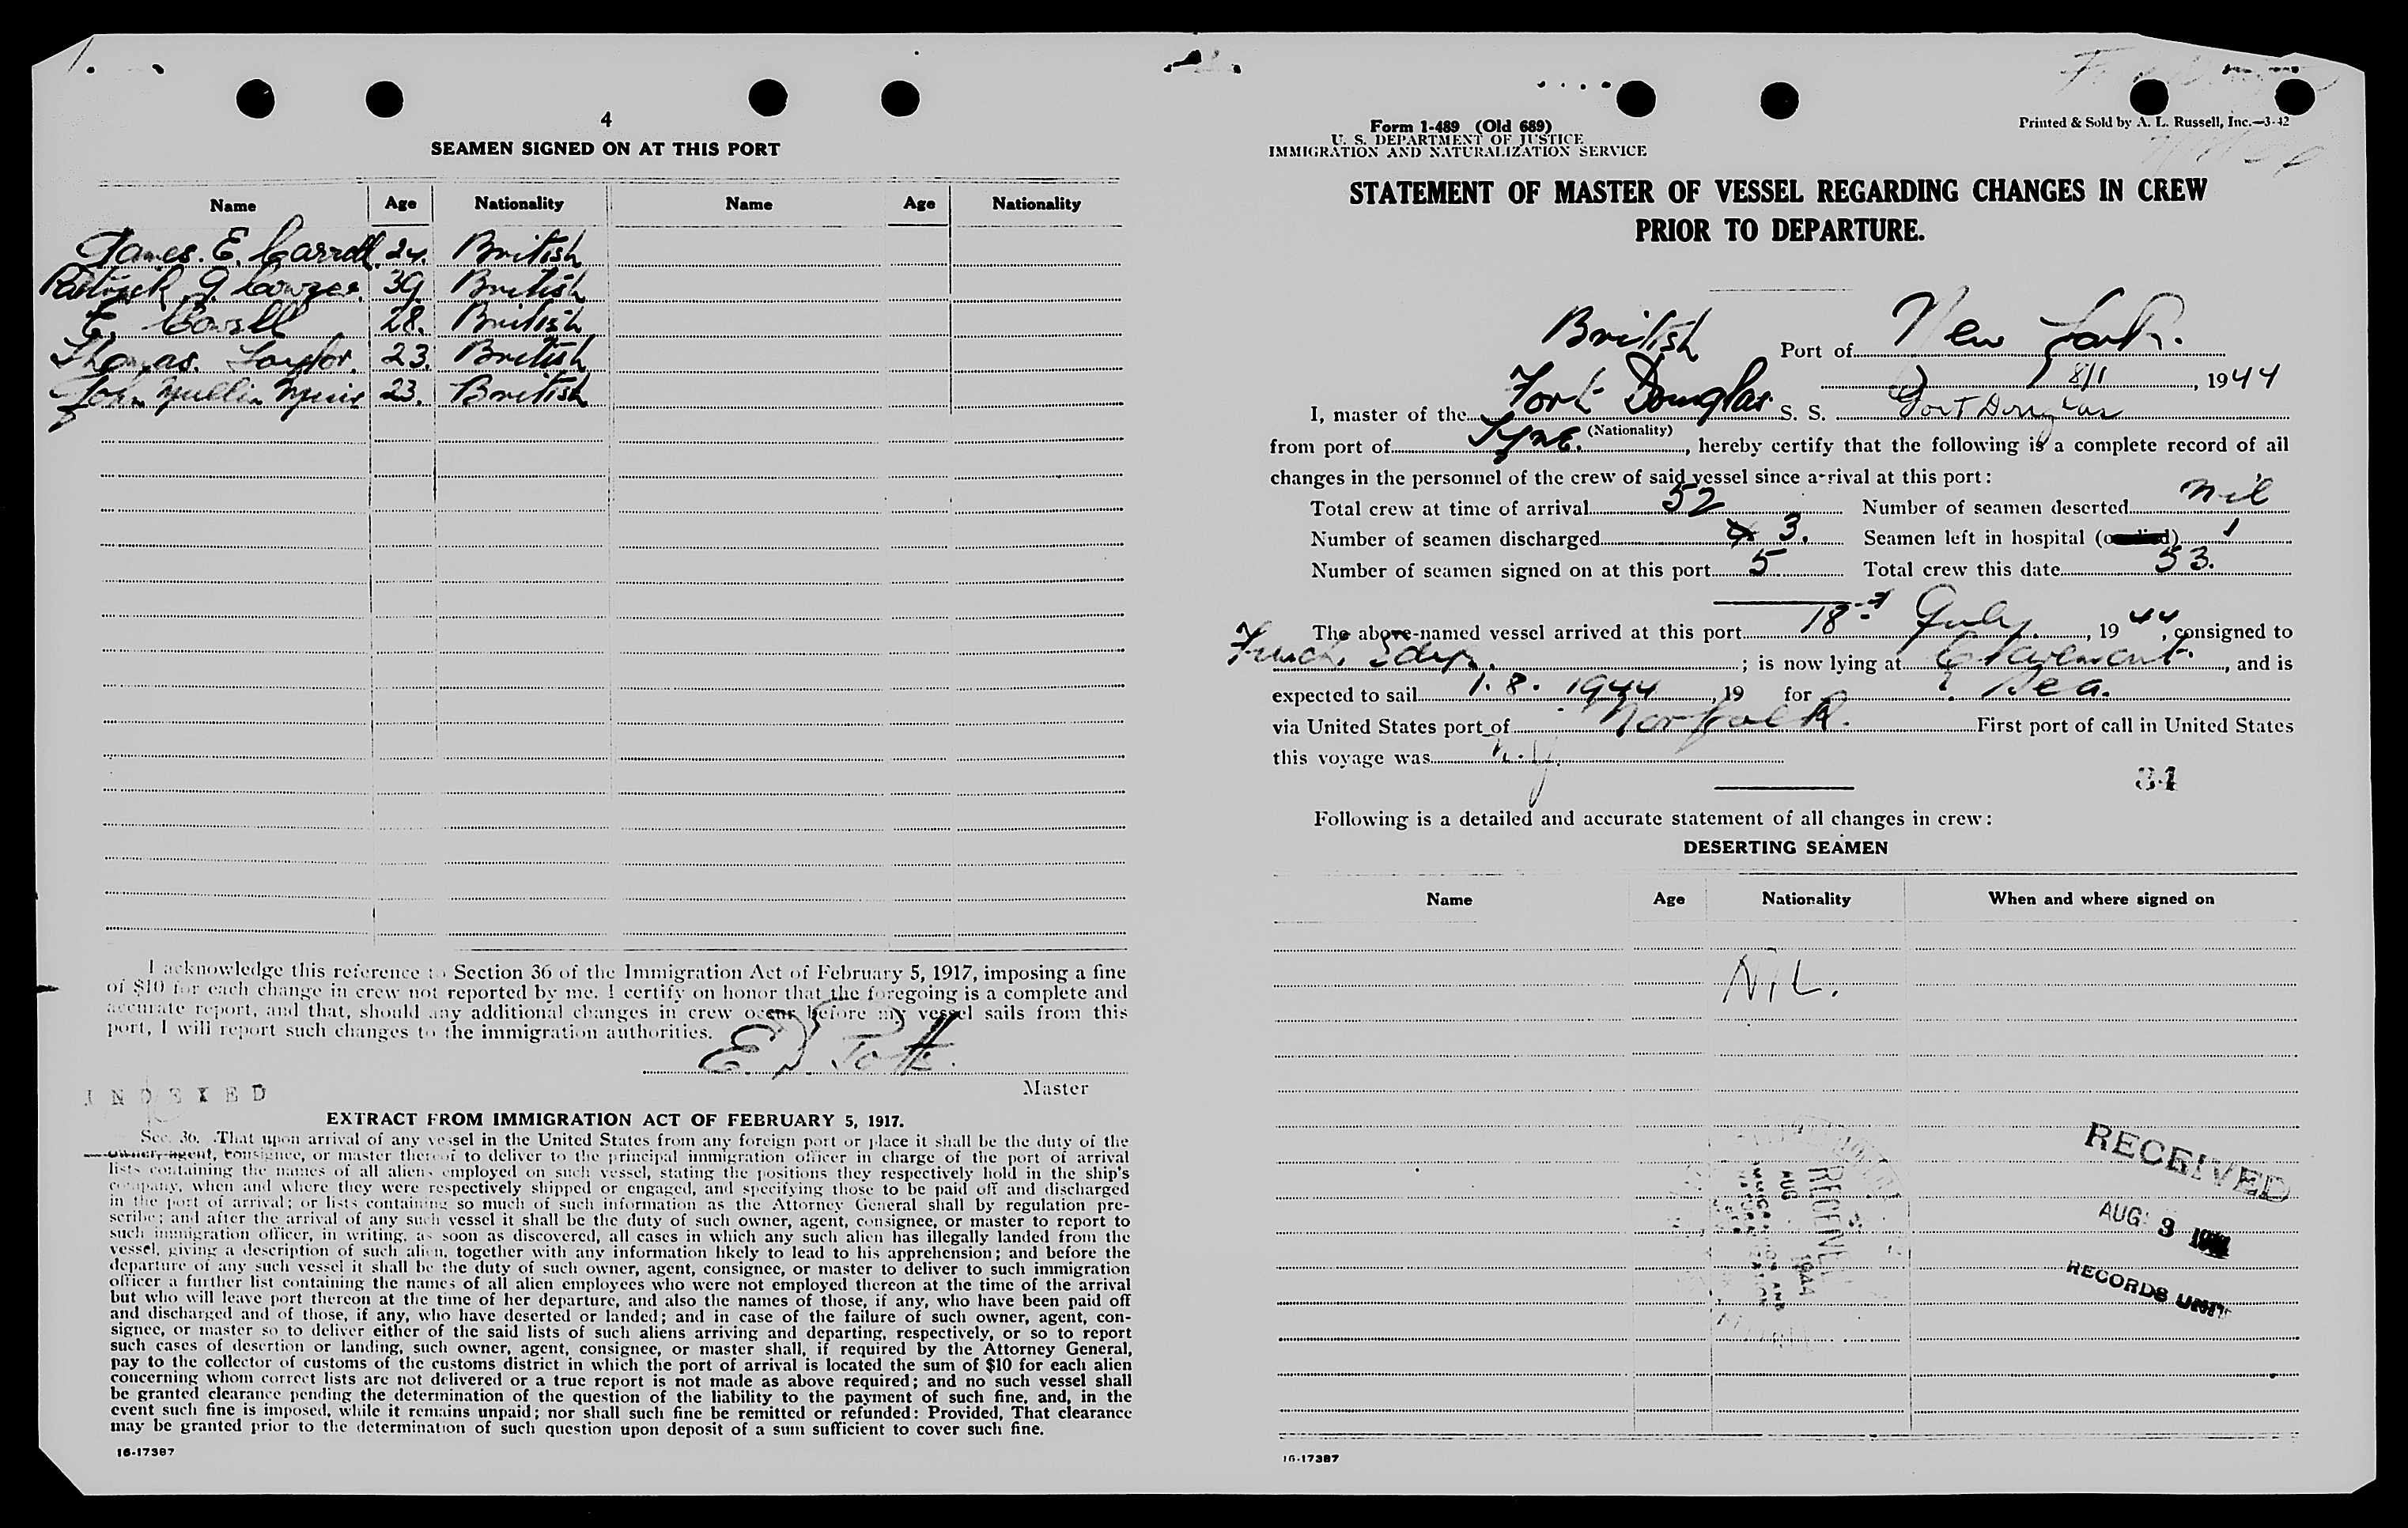 4
SEAMEN SIGNED ON AT THIS PORT
Name Age Nationality Name Age Nationality
James. E. Carroll. 24. British
Patrick G. 39. British
28. British
Thomas. Taylor. 23. British
John Mullin Muir 23. British
I acknowledge this reference to Section 36 of the Immigration Act of February 5, 1917, imposing a fine
of $10 for each change in crew not reported by me. I certify on honor that the foregoing is a complete and
accurate report, and that, should any additional changes in crew occur before my vessel sails from this
port, I will report such changes to the immigration authorities.
Master
INDEXED
EXTRACT FROM IMMIGRATION ACT OF FEBRUARY 5, 1917.
Sec. 36. That upon arrival of any vessel in the United States from any foreign port or place it shall be the duty of the
owner, agent, consignee, or master thereof to deliver to the principal immigration officer in charge of the port of arrival
lists containing the names of all aliens employed on such vessel, stating the positions they respectively hold in the ship's
company, when and where they were respectively shipped or engaged, and specifying those to be paid off and discharged
in the port of arrival; or lists containing so much of such information as the Attorney General shall by regulation pre-
scribe; and after the arrival of any such vessel it shall be the duty of such owner, agent, consignee, or master to report to
such immigration officer, in writing, as soon as discovered, all cases in which any such alien has illegally landed from the
vessel, giving a description of such alien, together with any information likely to lead to his apprehension; and before the
departure of any such vessel it shall be the duty of such owner, agent, consignee, or master to deliver to such immigration
officer a further list containing the names of all alien employees who were not employed thereon at the time of the arrival
but who will leave port thereon at the time of her departure, and also the names of those, if any, who have been paid off
and discharged and of those, if any, who have deserted or landed; and in case of the failure of such owner, agent, con-
signee, or master so to deliver either of the said lists of such aliens arriving and departing, respectively, or so to report
such cases of desertion or landing, such owner, agent, consignee, or master shall, if required by the Attorney General,
pay to the collector of customs of the customs district in which the port of arrival is located the sum of $10 for each alien
concerning whom correct lists are not delivered or a true report is not made as above required; and no such vessel shall
be granted clearance pending the determination of the question of the liability to the payment of such fine, and, in the
event such fine is imposed, while it remains unpaid; nor shall such fine be remitted or refunded: Provided, That clearance
may be granted prior to the determination of such question upon deposit of a sum sufficient to cover such fine.
16-17387
Form I-489 (Old 689)
U. S. DEPARTMENT OF JUSTICE
IMMIGRATION AND NATURALIZATION SERVICE
Printed & Sold by A. L. Russell, Inc.—3-42
STATEMENT OF MASTER OF VESSEL REGARDING CHANGES IN CREW
PRIOR TO DEPARTURE.
British Port of New York.
8/1, 1944
I, master of the Fort Douglas S. S. Fort Douglas
(Nationality)
from port of Tyne., hereby certify that the following is a complete record of all
changes in the personnel of the crew of said vessel since arrival at this port:
Total crew at time of arrival 52 Number of seamen deserted nil
Number of seamen discharged 3. Seamen left in hospital 1
Number of seamen signed on at this port 5 Total crew this date 53.
The above-named vessel arrived at this port 18th July, 1944, consigned to
French Edye.; is now lying at Claremont., and is
expected to sail 1. 8. 1944, 19 for Sea.
via United States port of Norfolk. First port of call in United States
this voyage was N.Y.
34
Following is a detailed and accurate statement of all changes in crew:
DESERTING SEAMEN
Name Age Nationality When and where signed on
NIL.
RECEIVED
AUG 1944
RECEIVED
AUG 3
RECORDS UNIT
16-17387